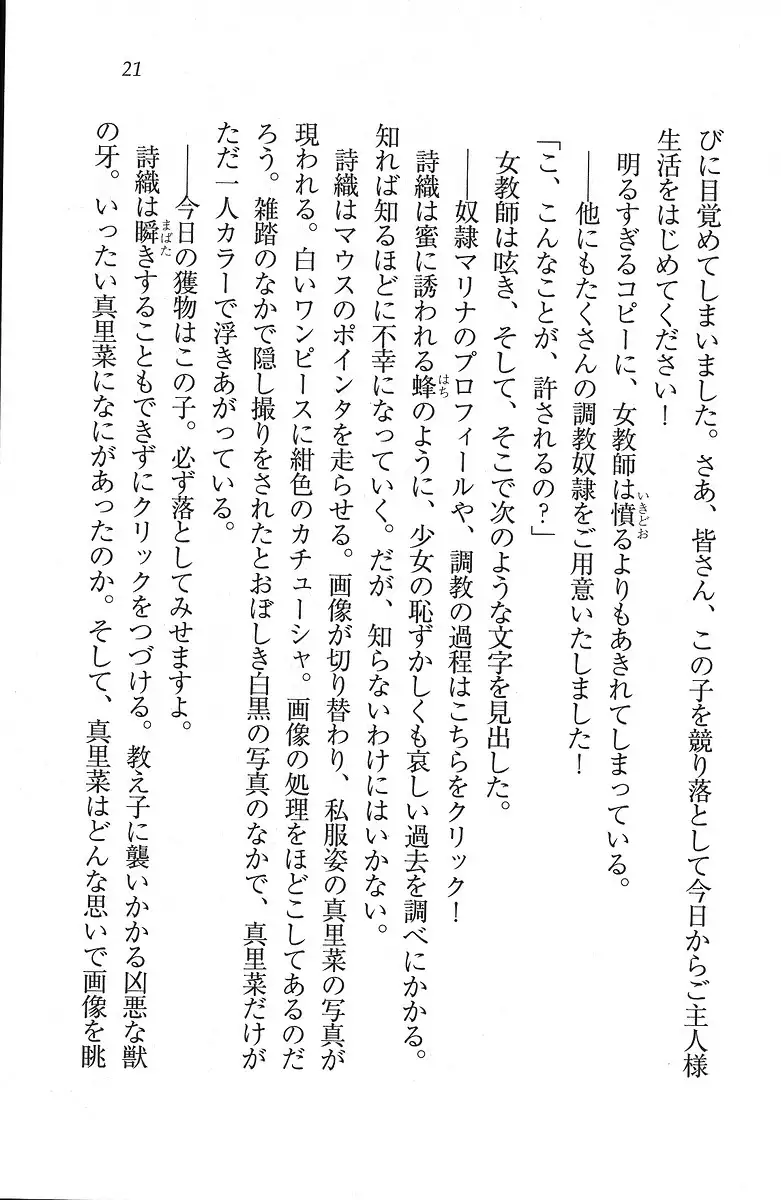 21
びに目覚めてしまいました。さあ、皆さん、この子を競り落として今日からご主人様
生活をはじめてください！
明るすぎるコピーに、女教師は憤るよりもあきれてしまっている。
――他にもたくさんの調教奴隷をご用意いたしました！
「こ、こんなことが、許されるの？」
女教師は呟き、そして、そこで次のような文字を見出した。
――奴隷マリナのプロフィールや、調教の過程はこちらをクリック！
詩織は蜜に誘われる蜂のように、少女の恥ずかしくも哀しい過去を調べにかかる。
知れば知るほどに不幸になっていく。だが、知らないわけにはいかない。
詩織はマウスのポインタを走らせる。画像が切り替わり、私服姿の真里菜の写真が
現われる。白いワンピースに紺色のカチューシャ。画像の処理をほどこしてあるのだ
ろう。雑踏のなかで隠し撮りをされたとおぼしき白黒の写真のなかで、真里菜だけが
ただ一人カラーで浮きあがっている。
――今日の獲物はこの子。必ず落としてみせますよ。
詩織は瞬きすることもできずにクリックをつづける。教え子に襲いかかる凶悪な獣
の牙。いったい真里菜になにがあったのか。そして、真里菜はどんな思いで画像を眺